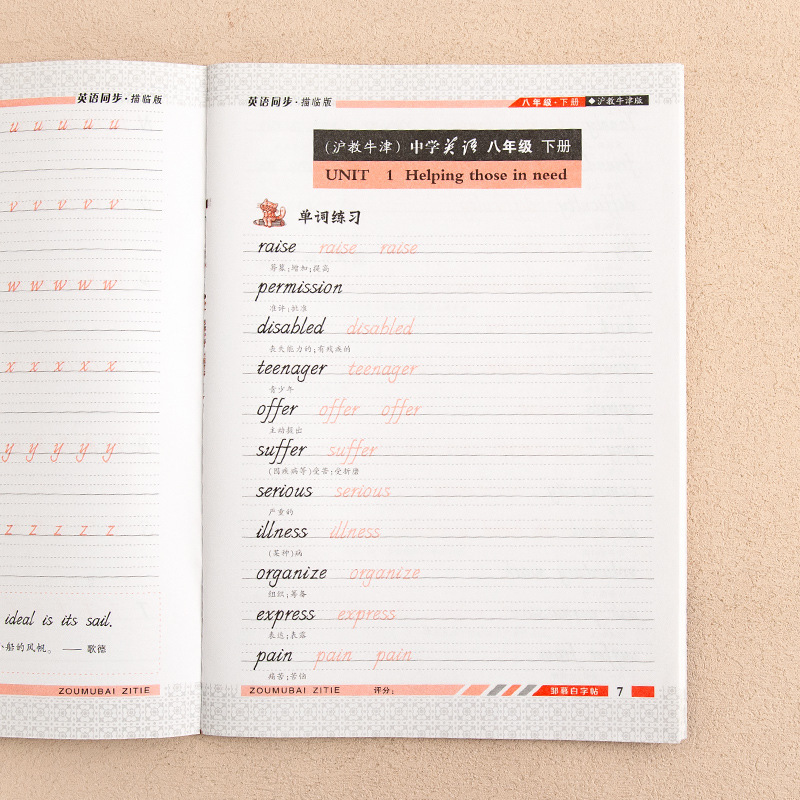 英语同步·描临版
u u u u u
v v v v v
w w w w w
x x x x x
y y y y y
z z z z z
ideal is its sail.
小船的风帆。 —— 歌德
ZOUMUBAI ZITIE
英语同步·描临版
八年级·下册 ◆沪教牛津版
(沪教牛津) 中学英语 八年级 下册
UNIT 1 Helping those in need
单词练习
raise raise raise
募集;增加;提高
permission
准许;批准
disabled disabled
丧失能力的;有残疾的
teenager teenager
青少年
offer offer offer
主动提出
suffer suffer
(因疾病等)受苦;受折磨
serious serious
严重的
illness illness
(某种)病
organize organize
组织;筹备
express express
表达;表露
pain pain pain
痛苦;苦恼
ZOUMUBAI ZITIE 评分: 邹慕白字帖 7